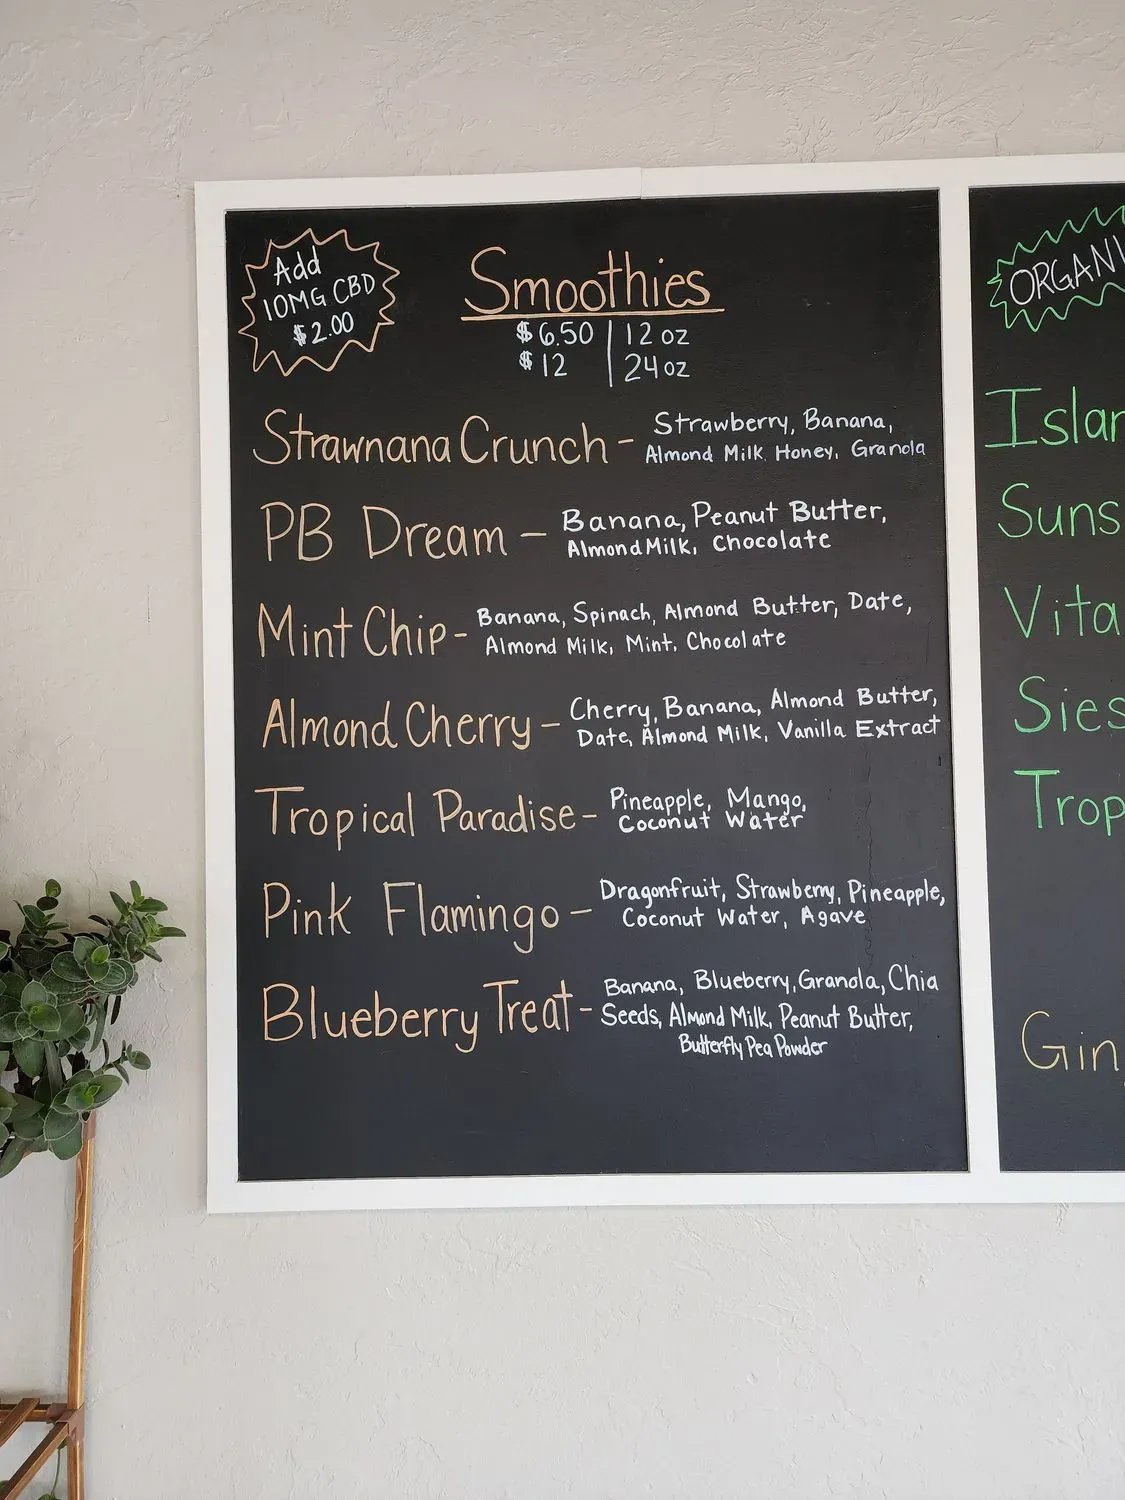 Add
10MG CBD
$2.00
Smoothies
$6.50 | 12 oz
$12 | 24 oz
Strawnana Crunch - Strawberry, Banana,
Almond Milk, Honey, Granola
PB Dream - Banana, Peanut Butter,
Almond Milk, Chocolate
Mint Chip - Banana, Spinach, Almond Butter, Date,
Almond Milk, Mint, Chocolate
Almond Cherry - Cherry, Banana, Almond Butter,
Date, Almond Milk, Vanilla Extract
Tropical Paradise - Pineapple, Mango,
Coconut Water
Pink Flamingo - Dragonfruit, Strawberry, Pineapple,
Coconut Water, Agave
Blueberry Treat - Banana, Blueberry, Granola, Chia
Seeds, Almond Milk, Peanut Butter,
Butterfly Pea Powder
ORGANI
Islan
Suns
Vita
Sies
Trop
Gin